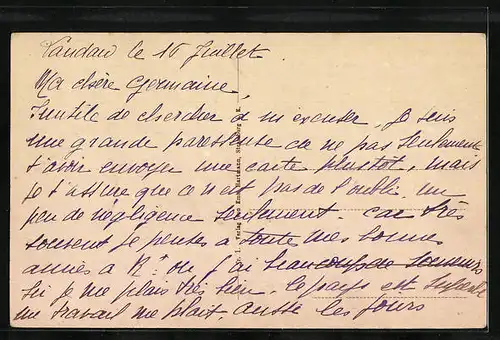 Landau le 16 Juillet.
Ma chère Germaine,
Inutile de chercher à m'excuser. Je suis
une grande paresseuse de ne pas seulement
t'avoir envoyer une carte plustot, mais
je t'assure que ce n'est pas de l'oubli, un
peu de négligence seulement. car très
souvent je penses à toute mes bonnes
amies à R. où j'ai beaucoups de
Ici je me plais très bien, le pays est superbe
mon travail me plait, aussi les jours
Verlag von Emil Hartmann, Strassburg i. E.